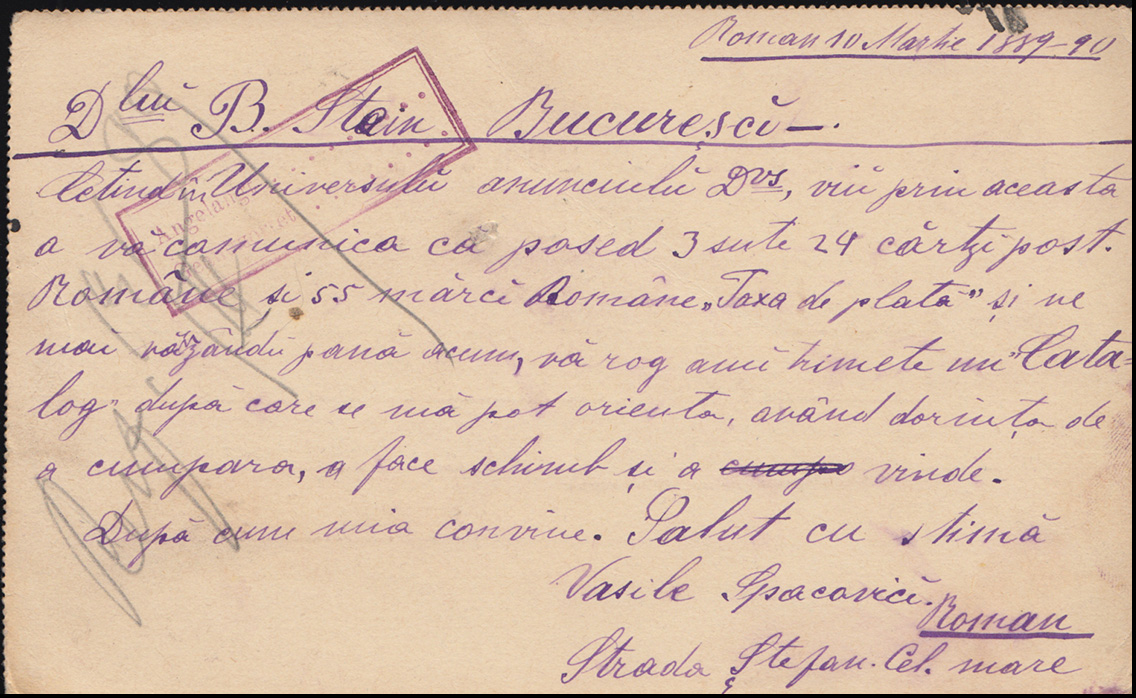 Roman 10 Martie 1889-90
Dlui B. Stein Bucuresci-.
Cetind în Universulŭ anunciulŭ Dvs, viŭ prin aceasta
a va comunica că posed 3 sute 24 cărtzi post.
Române si 55 mărci Române „Taxa de plată" și ne
mai văzândŭ pană acum, vă rog ami trimete un "Cata-
log" după care se mă pot orienta, având dorința de
a cumpara, a face schimb și a cumpa vinde.
După cum mia convine. Salut cu stimă
Vasile Spacovici.
Roman
Strada Ștefan. Cel. mare
Angelang